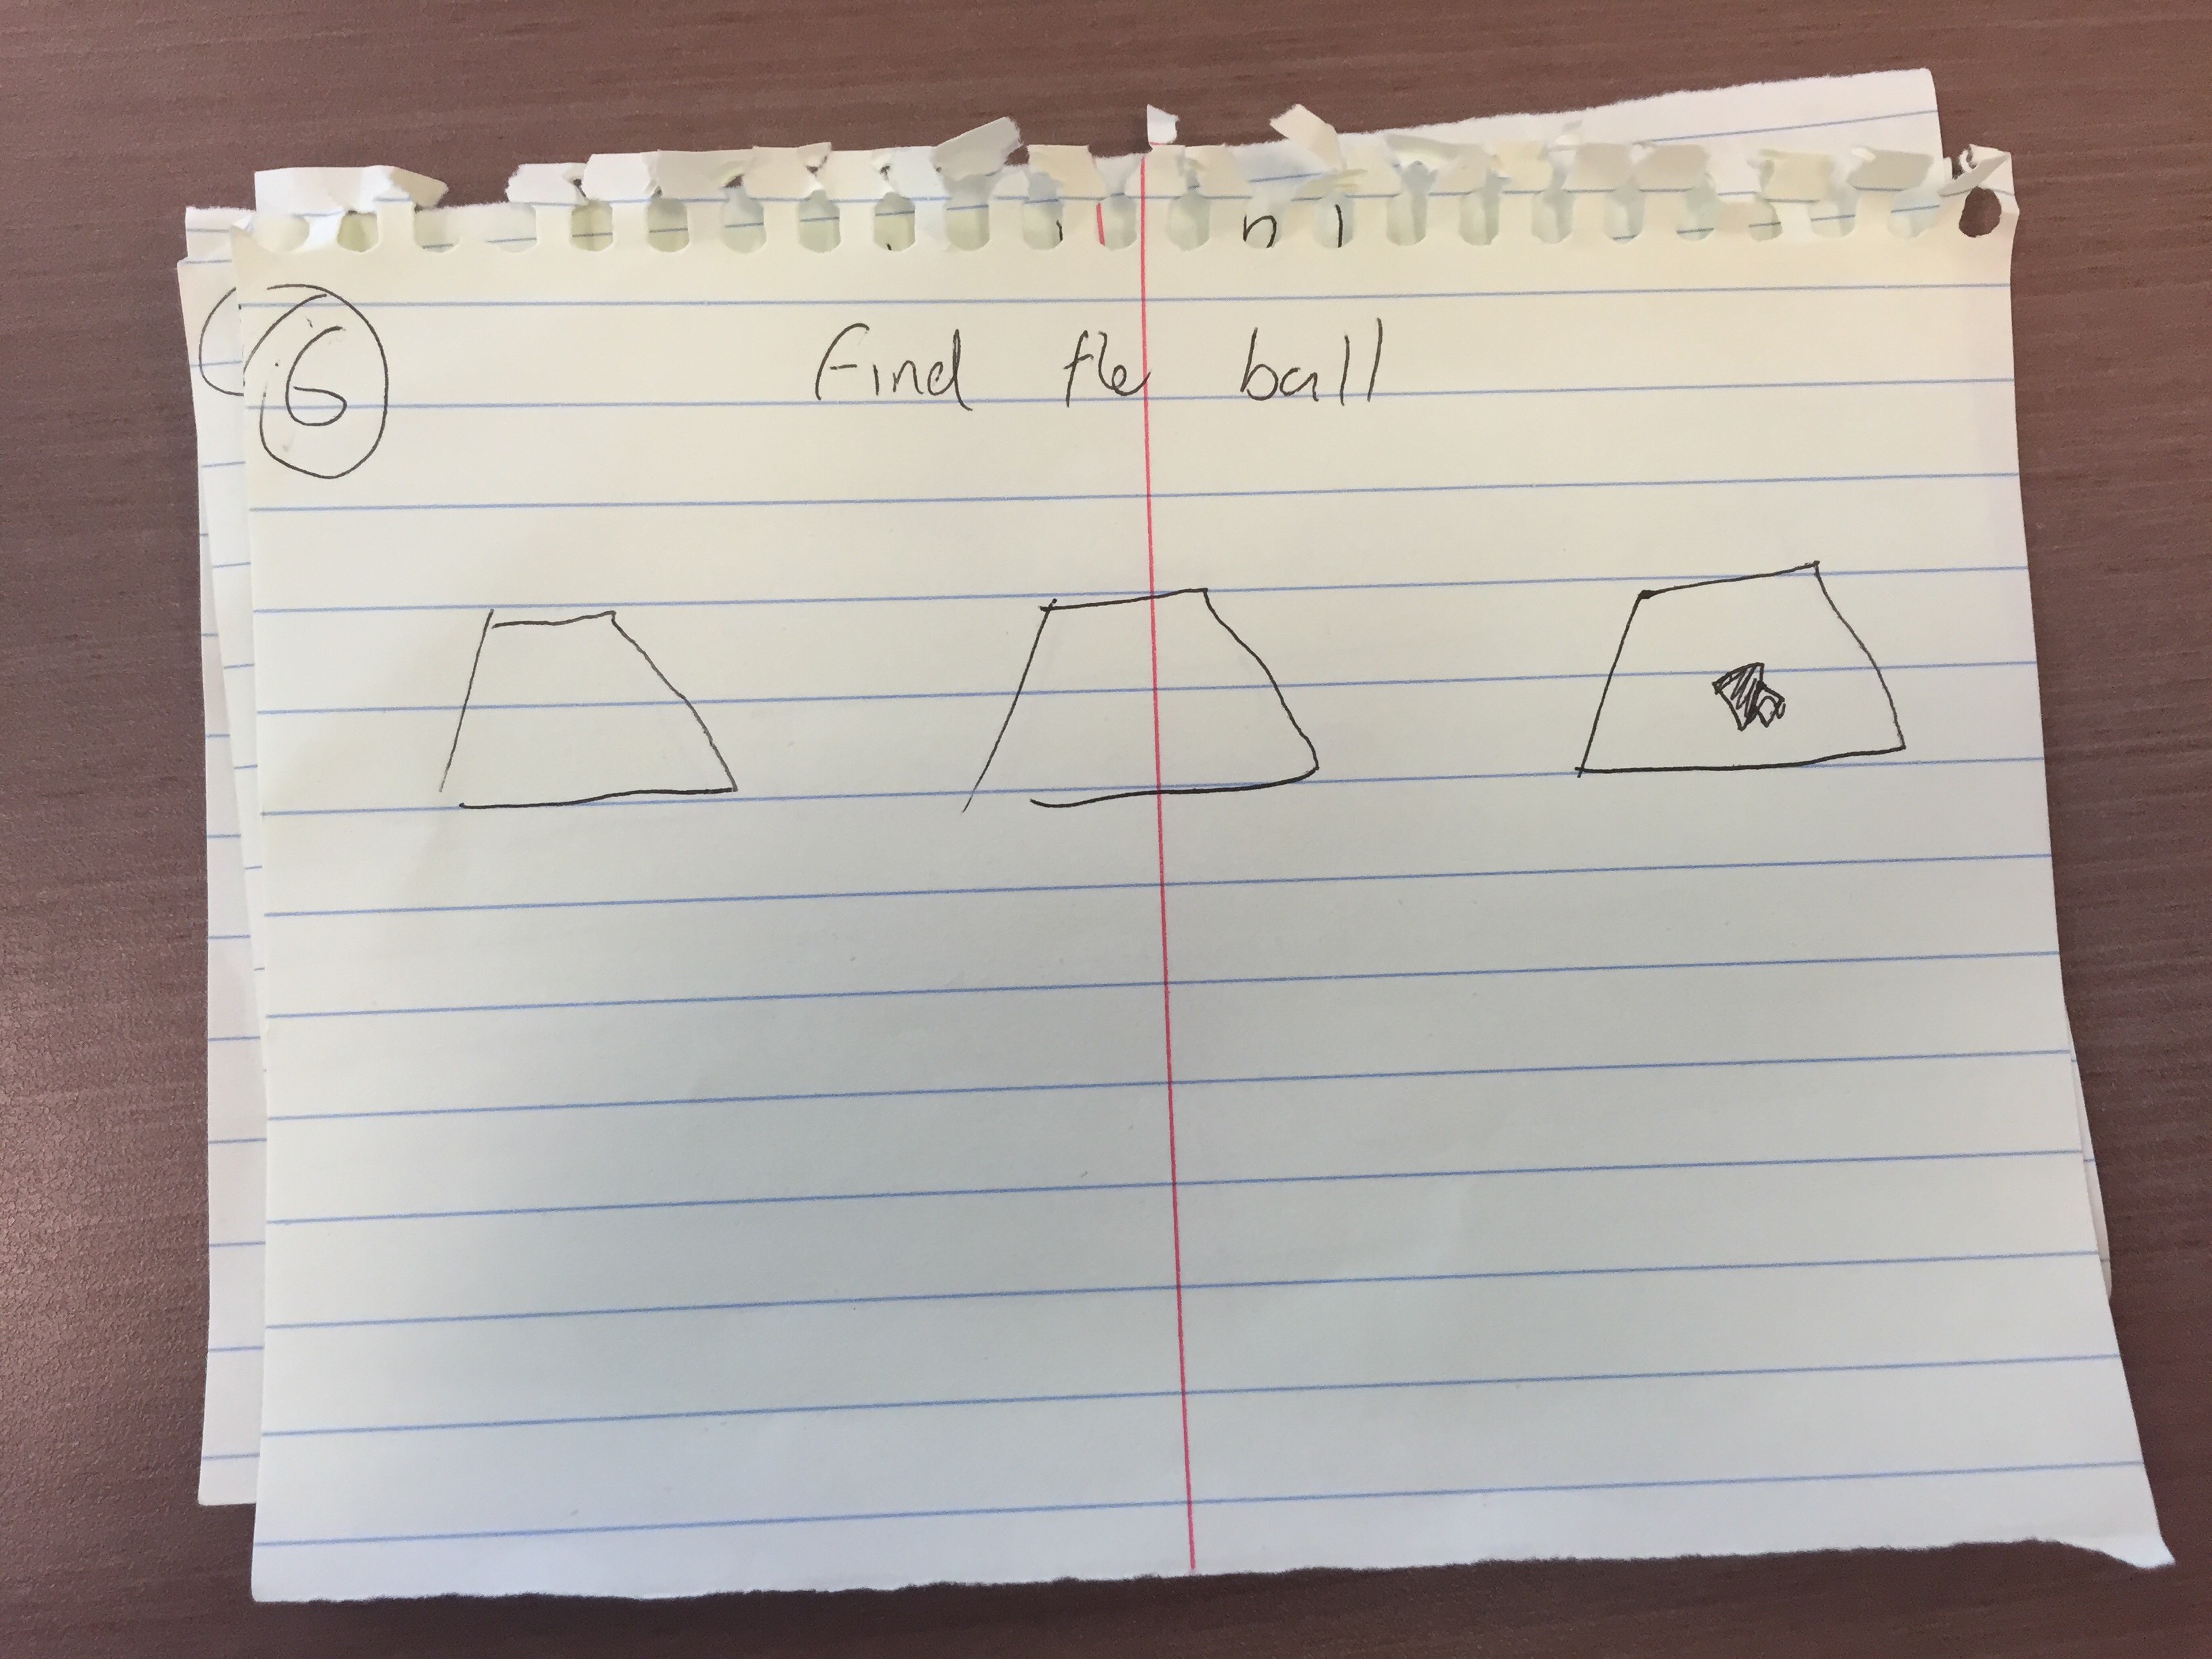 6
Find the ball